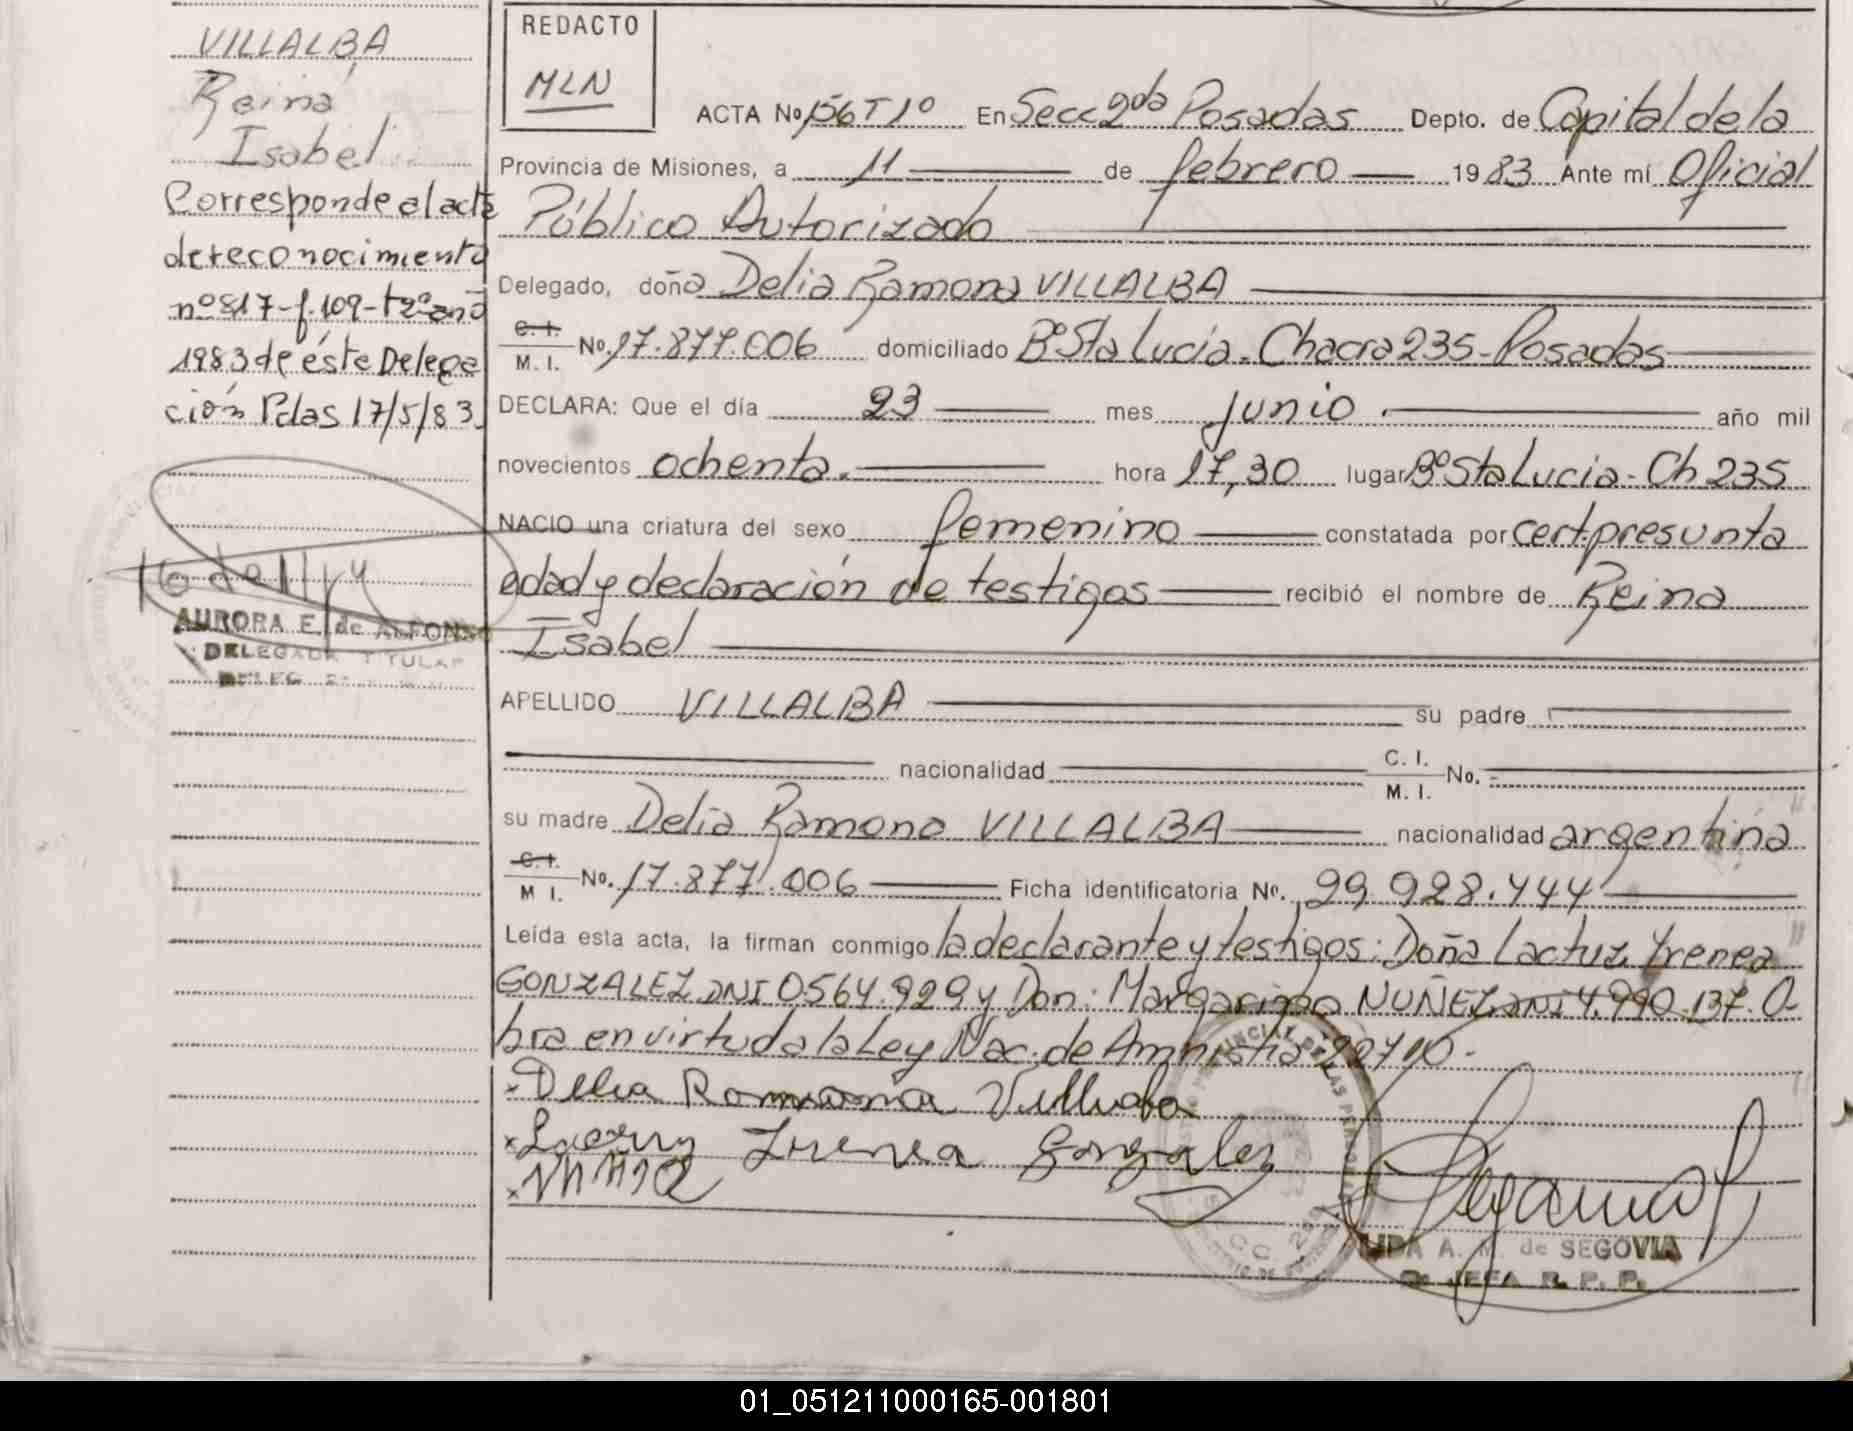 VILLALBA
Reina
Isabel
Corresponde al acta
de reconocimiento
nº 817-f. 109-t 2º año
1983 de éste Delega
ción Pdas 17/5/83
AURORA E. de ALFONSO
DELEGADA TITULAR
DELEG
REDACTO
MLN
ACTA No 156 T 1º En Secc 2da Posadas Depto. de Capital de la
Provincia de Misiones, a 11 de febrero 1983 Ante mí Oficial
Público Autorizado
Delegado, doña Delia Ramona VILLALBA
C.I.
M. I. No 17.877.006 domiciliado Bº Sta Lucia - Chacra 235 - Posadas
DECLARA: Que el día 23 mes junio año mil
novecientos ochenta. hora 17,30 lugar Bº Sta Lucia - Ch 235
NACIO una criatura del sexo femenino constatada por cert. presunta
edad y declaración de testigos recibió el nombre de Reina
Isabel
APELLIDO VILLALBA su padre
nacionalidad C. I.
M. I. No.
su madre Delia Ramona VILLALBA nacionalidad argentina
C.I.
M I. No. 17.877.006 Ficha identificatoria No. 99.928.444
Leída esta acta, la firman conmigo la declarante y testigos: Doña Lactuz Yrenea
GONZALEZ DNI 0.564.929 y Don: Margarino NUÑEZ DNI 4.990.137. O-
bra en virtud a la Ley Nac. de Amnistia
Delia Ramona Villalba
Irenea Gonzalez
LIDA A. M. de SEGOVIA
JEFA R. P. P.
01_051211000165-001801